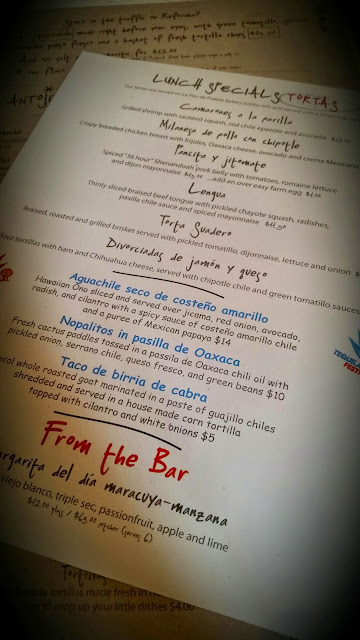 made right before your eyes, with
queso fresco and a basket of fresh tortilla chips
for $12.00
ANTOJI
LUNCH SPECIALS TORTAS
Camarones a la parilla
Grilled shrimp with sautéed squash, red chile epazote and avocado.
Milanesa de pollo con chipotle
Crispy breaded chicken breast with frijoles, Oaxaca cheese, avocado and crema Mexicana
Pancita y jitomate
Spiced "36 hour" Shenandoah pork belly with tomatoes, romaine lettuce
and dijon mayonnaise ...add an over easy farm egg
Lengua
Thinly sliced braised beef tongue with pickled chayote squash, radishes,
pasilla chile sauce and spiced mayonnaise
Torta Suadero
Braised, roasted and grilled brisket served with pickled tomatillo, dijonnaise, lettuce and onion
Divorciadas de jamón y queso
flour tortillas with ham and Chihuahua cheese, served with chipotle chile and green tomatillo sauces
Aguachile seco de costeño amarillo
Hawaiian Ono sliced and served over jicama, red onion, avocado,
radish, and cilantro with a spicy sauce of costeño amarillo chile
and a puree of Mexican papaya $14
Nopalitos in pasilla de Oaxaca
Fresh cactus paddles tossed in a passila de Oaxaca chili oil with
pickled onion, serrano chile, queso fresco, and green beans $10
Taco de birria de cabra
local whole roasted goat marinated in a paste of guajillo chiles
shredded and served in a house made corn tortilla
topped with cilantro and white bnions $5
From the Bar
margarita del día maracuya-manzana
Viejo blanco, triple sec, passionfruit, apple and lime
$12.00 glass / $65.00 pitcher (serves 6)
made tortillas made fresh in
to mop up your little dishes $4.00